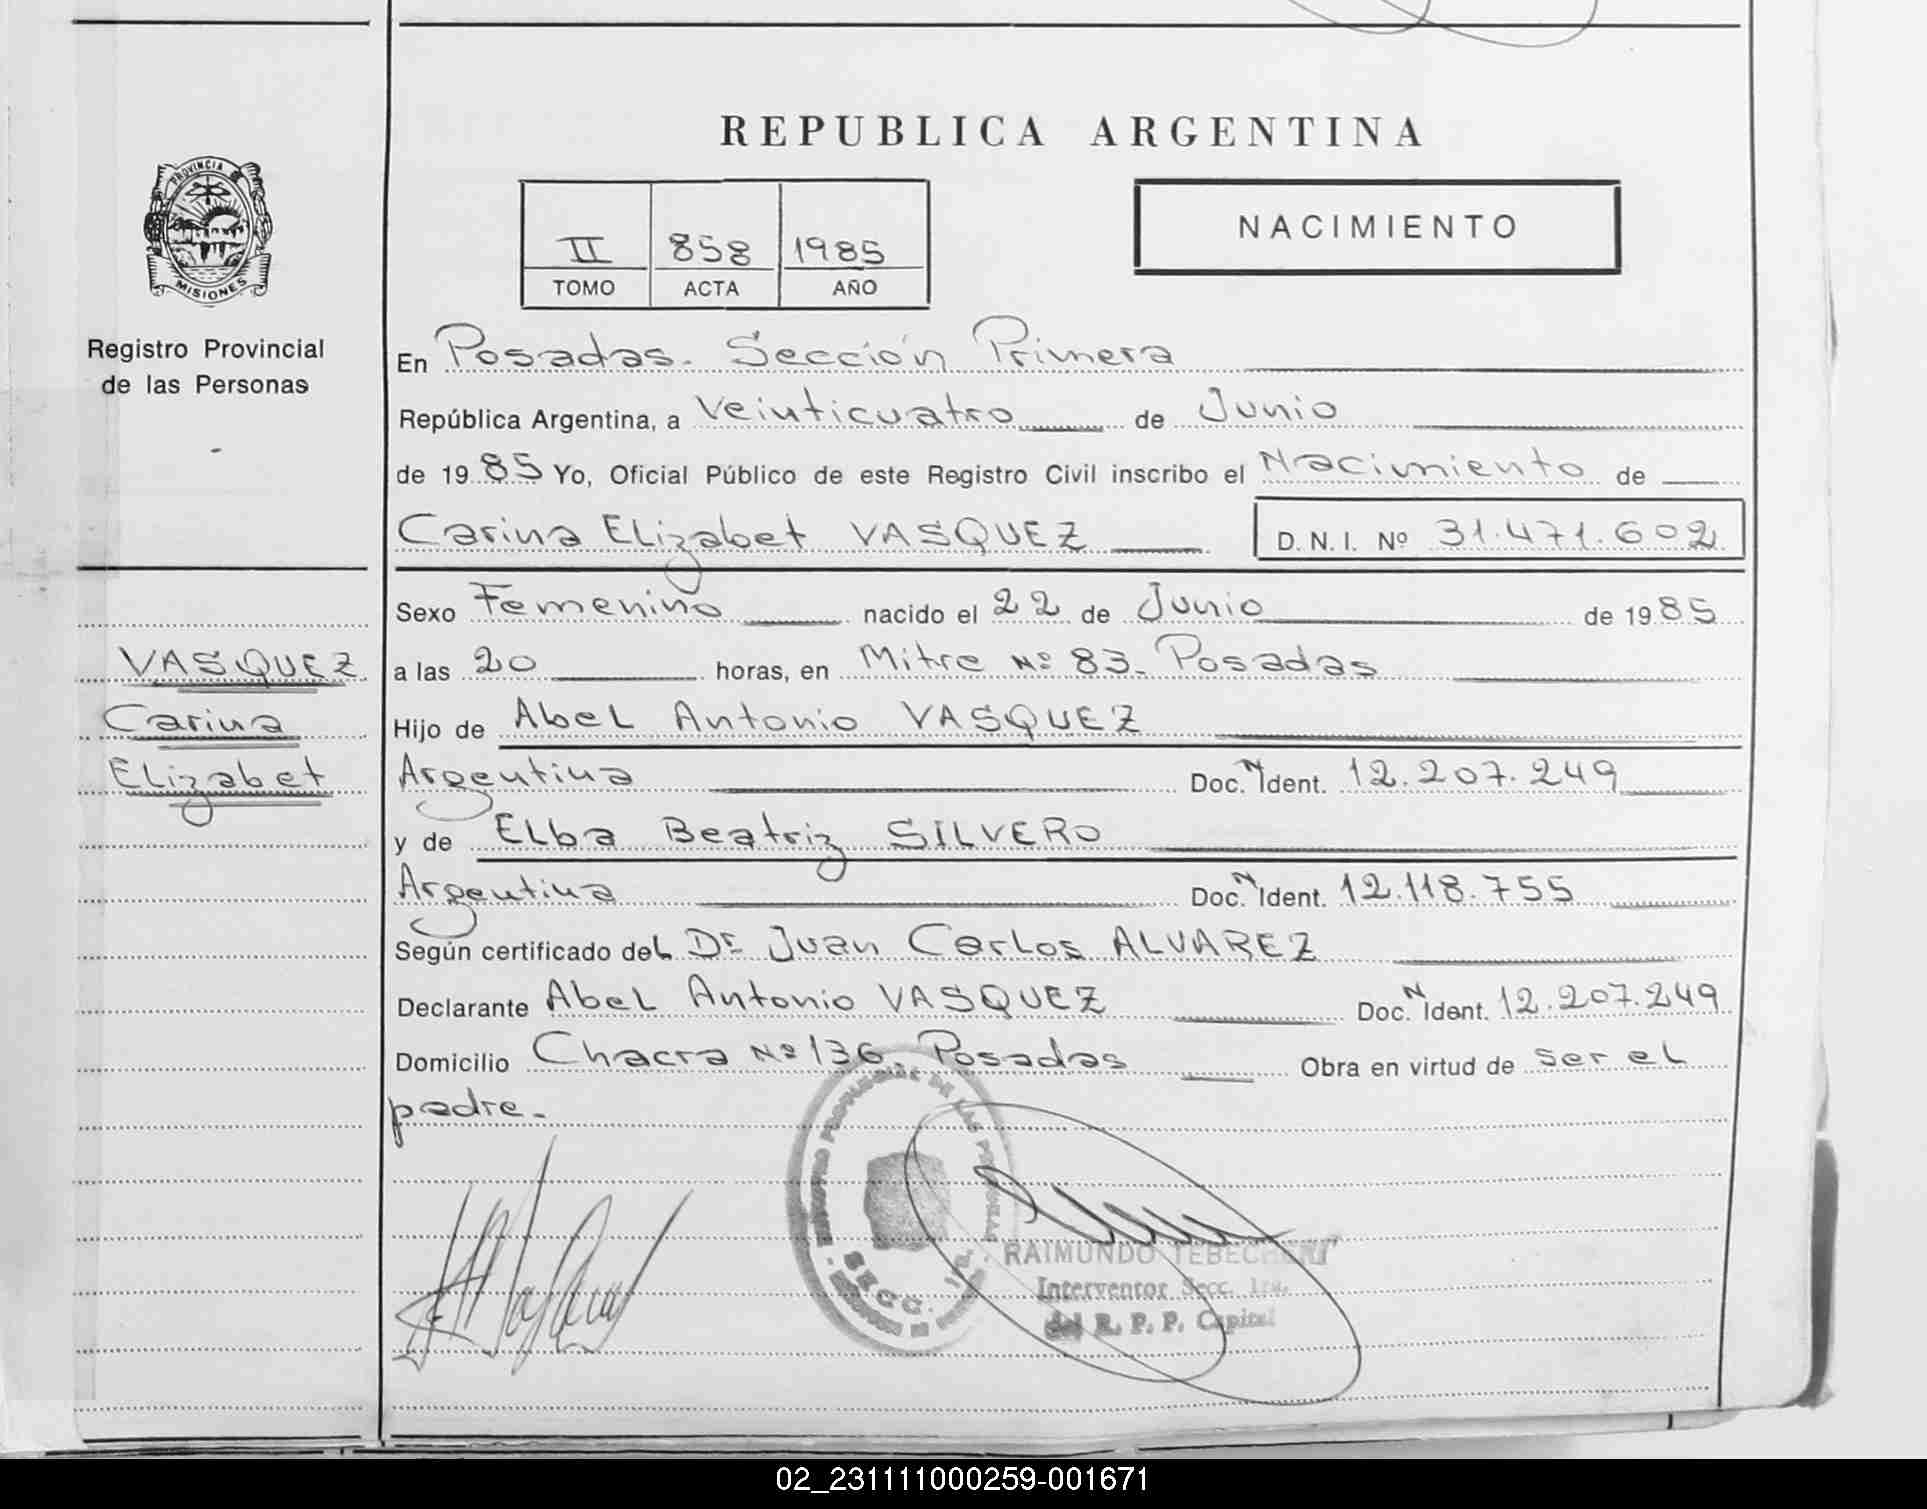 REPUBLICA ARGENTINA
PROVINCIA DE
MISIONES
II 858 1985
TOMO ACTA AÑO
NACIMIENTO
Registro Provincial
de las Personas
En Posadas. Sección Primera
República Argentina, a Veinticuatro de Junio
de 1985 Yo, Oficial Público de este Registro Civil inscribo el Nacimiento de
Carina Elizabet VASQUEZ D. N. I. Nº 31.471.602
Sexo Femenino nacido el 22 de Junio de 1985
VASQUEZ
Carina
Elizabet
a las 20 horas, en Mitre Nº 83. Posadas
Hijo de Abel Antonio VASQUEZ
Argentina Doc. N Ident. 12.207.249
y de Elba Beatriz SILVERO
Argentina Doc. N Ident. 12.118.755
Según certificado del Dr Juan Carlos ALVAREZ
Declarante Abel Antonio VASQUEZ Doc. N Ident. 12.207.249
Domicilio Chacra Nº 136. Posadas Obra en virtud de ser el
padre.-
REGISTRO PROVINCIAL DE LAS PERSONAS
SECC.
RAIMUNDO
Interventor Secc. 1ra.
del R. P. P. Capital
02_231111000259-001671